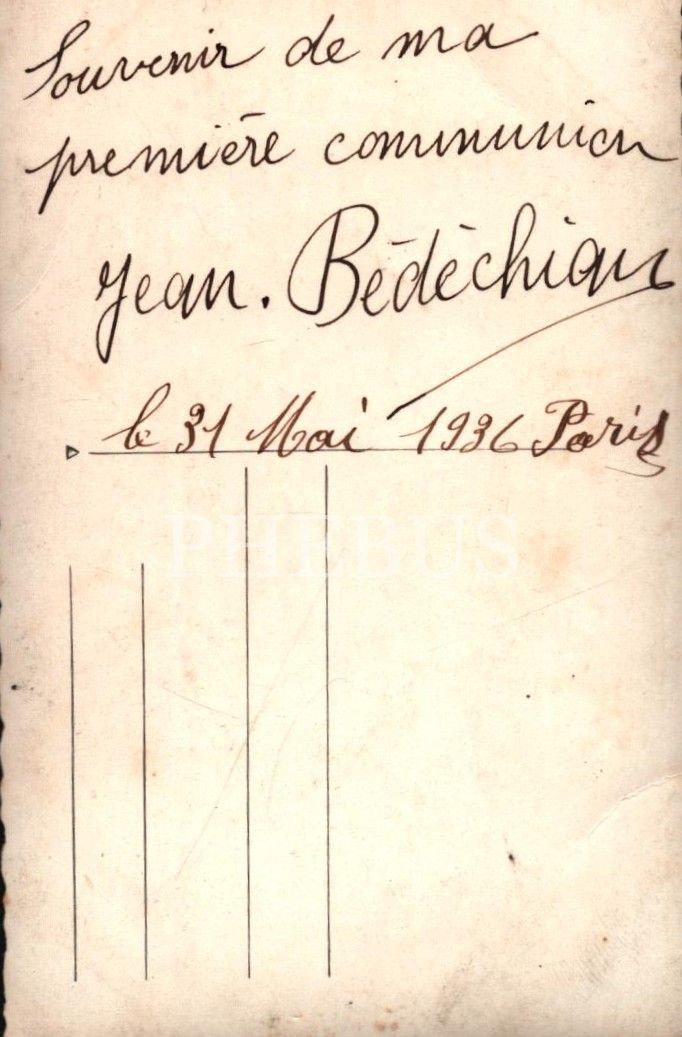 Souvenir de ma
première communion
Jean. Bédéchian
le 31 Mai 1936 Paris
PHEBUS